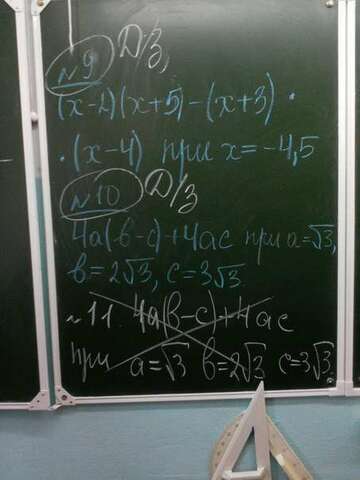 №9 Д/З,
(x-2)(x+5)-(x+3)·
·(x-4) при x=-4,5
№10 Д/З
4a(b-c)+4ac при a=√3,
b=2√3, c=3√3.
№11. 4a(b-c)+4ac
при a=√3 b=2√3 c=3√3